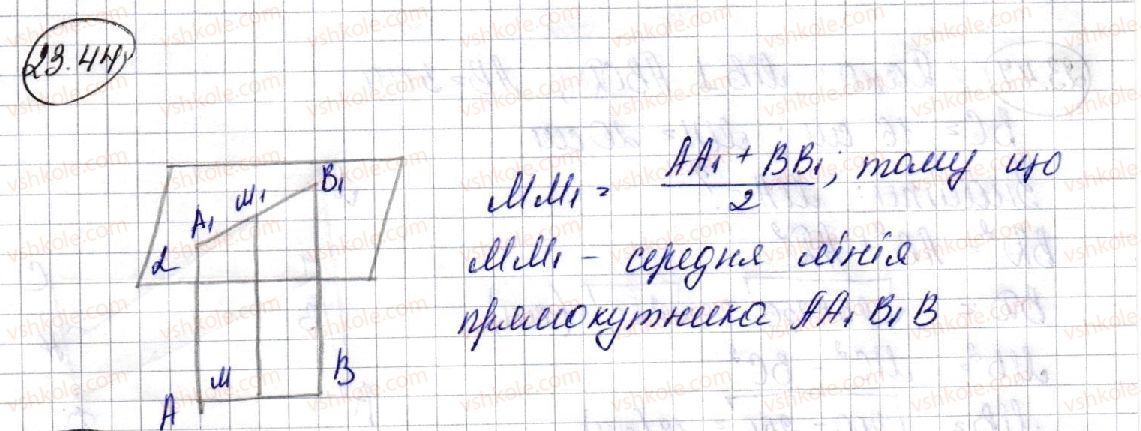 23.44
B₁
M₁
A₁
α
M
B
A
MM₁ = (AA₁ + BB₁)/2; тому що
MM₁ - середня лінія
прямокутника AA₁B₁B
vshkole.com